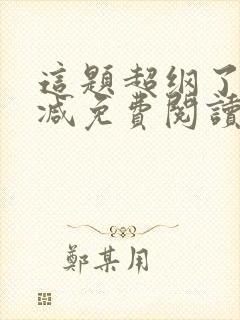 這題超綱了
減免費閱讀
鄭某用